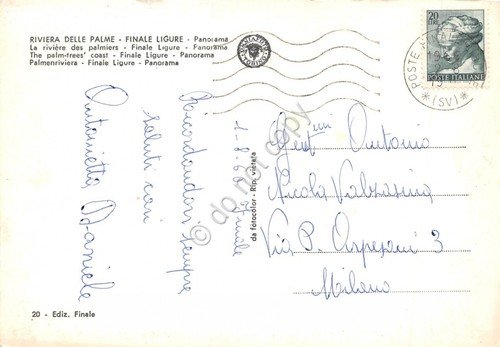 RIVIERA DELLE PALME - FINALE LIGURE - Panorama
La rivière des palmiers - Finale Ligure - Panorama
The palm-trees' coast - Finale Ligure - Panorama
Palmenriviera - Finale Ligure - Panorama
20
POSTE ITALIANE
POSTE
(SV)
Ricordandovi sempre
saluti cari
Antonietta Daniele
Finale
da fotocolor - Rip. vietata
do not copy
Gent.mi Antonio
Nicola Valsasina
Via P.
3
Milano
20 - Ediz. Finale